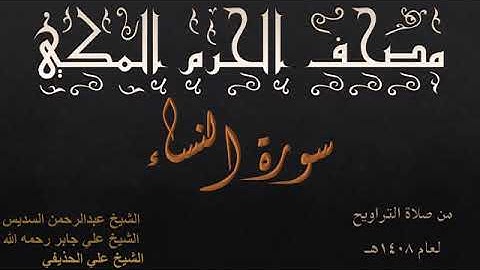 مصحف الحرم المكي
سورة النساء
من صلاة التراويح
لعام ١٤٠٨هـ
الشيخ عبدالرحمن السديس
الشيخ علي جابر رحمه الله
الشيخ علي الحذيفي